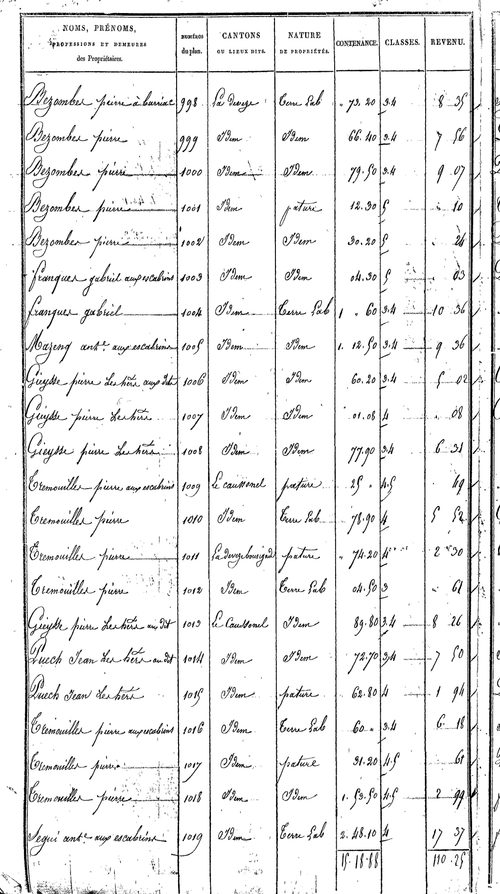 NOMS, PRÉNOMS, PROFESSIONS ET DEMEURES des Propriétaires. | NUMÉROS du plan. | CANTONS OU LIEUX DITS. | NATURE DE PROPRIÉTÉS. | CONTENANCE. | CLASSES. | REVENU.
Bezombes pierre à barriac 998 La deveze Terre Lab " 73.20 3.4 8 35
Bezombes pierre 999 Idem Idem 66.40 3.4 7 56
Bezombes pierre 1000 Idem Idem 79.50 3.4 9 07
Bezombes pierre 1001 Idem pature 12.30 5 " 10
Bezombes pierre 1002 Idem Idem 30.20 5 " 24
franques gabriel aux escabrins 1003 Idem Idem 04.30 5 03
franques gabriel 1004 Idem Terre Lab 1 " 60 3.4 10 36
Mazenq ant.e aux escabrins 1005 Idem Idem 1. 12.50 3.4 9 36
Gieysse pierre Les hérs aux dit 1006 Idem Idem 60.20 3.4 5 02
Gieysse pierre Les hérs 1007 Idem Idem 01.08 4 " 08
Gieysse pierre Les hérs 1008 Idem Idem 77.90 3.4 6 31
Tremouilles pierre aux escabrins 1009 Le caussonel pature 25 " 4.5 49
Tremouilles pierre 1010 Idem Terre Lab 78.90 4 5 52
Tremouilles pierre 1011 pature " 74.20 4 2 30
Tremouilles pierre 1012 Idem Terre Lab 04.50 3 " 61
Gieysse pierre Les hérs au dit 1013 Le Caussonel Idem 89.80 3.4 8 26
Puech Jean Les hérs au dit 1014 Idem Idem 72.70 3.4 7 50
Puech Jean Les hérs 1015 Idem pature 62.80 4 1 94
Tremouilles pierre aux escabrins 1016 Idem Terre Lab 60 " 3.4 6 18
Tremouilles pierre 1017 Idem pature 31.20 4.5 61
Tremouilles pierre 1018 Idem Idem 1. 53.50 4.5 2 99
Segui ant.e aux escabrins 1019 Idem Terre Lab 2. 48.10 4 17 37
15.18.88 110.25